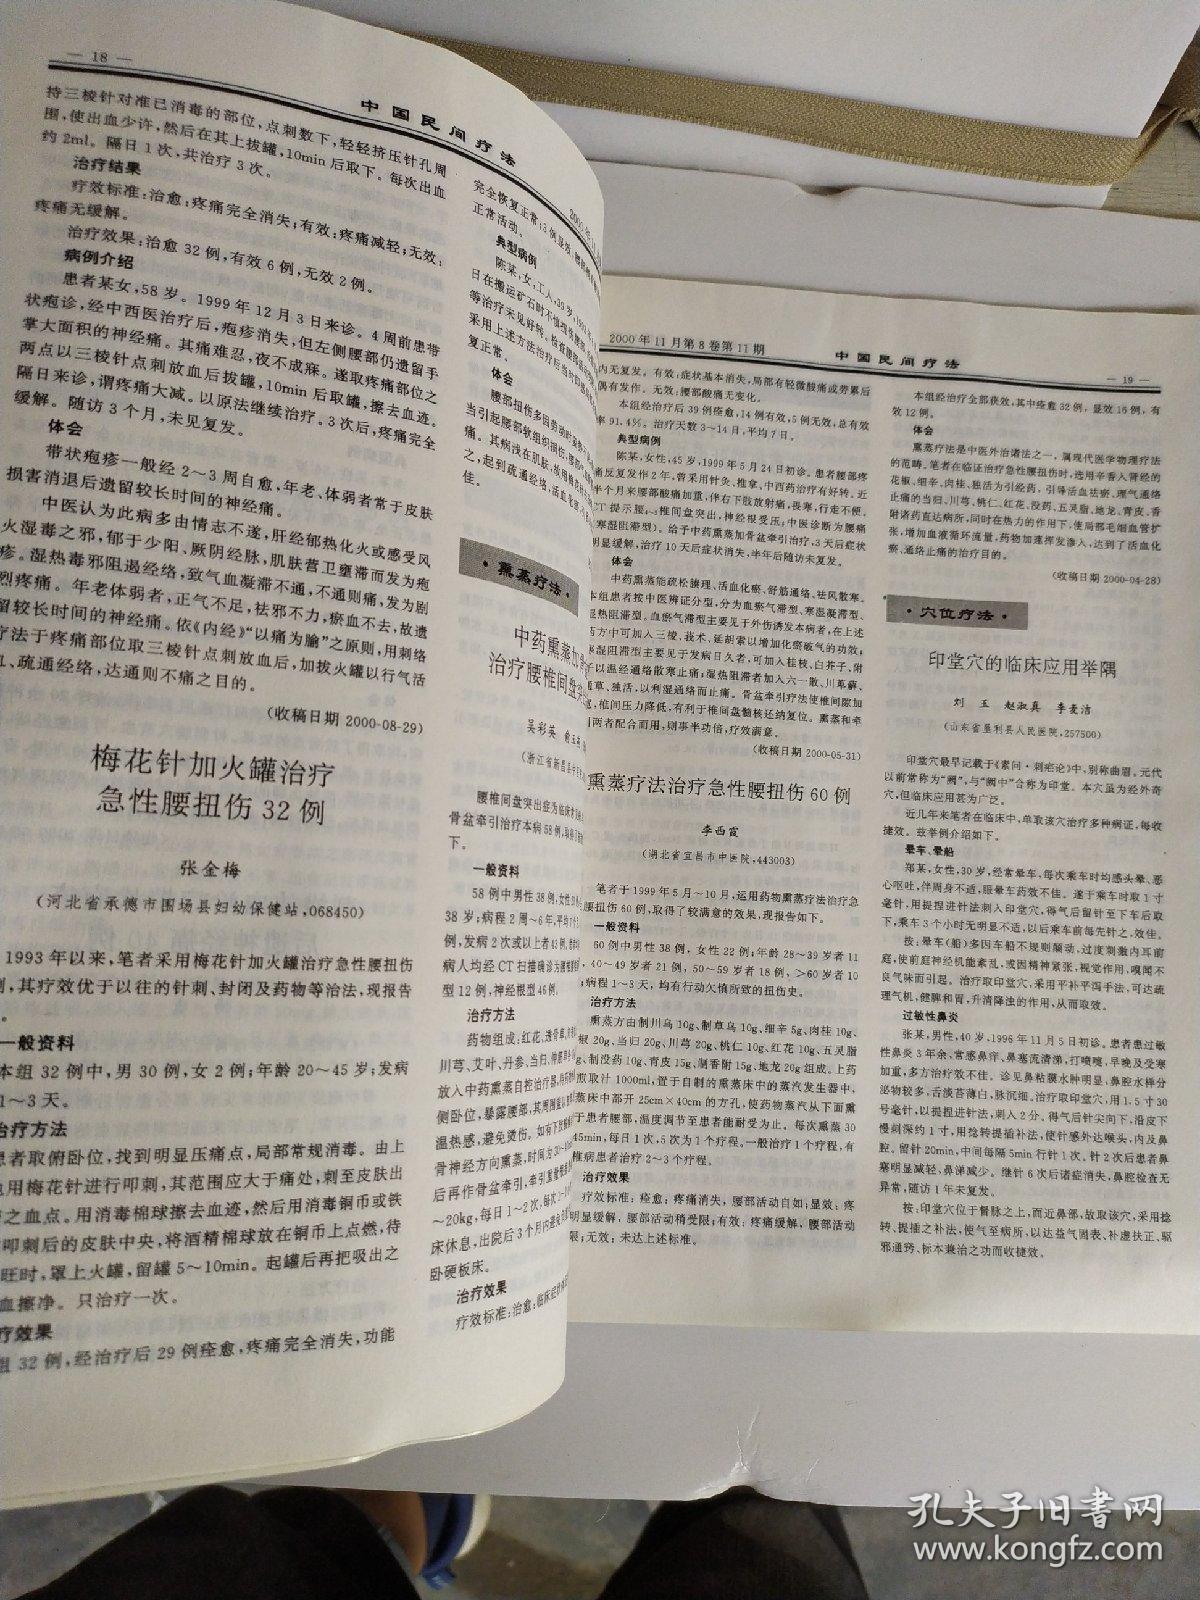 — 18 —
中国民间疗法
持三棱针对准已消毒的部位,点刺数下,轻轻挤压针孔周
围,使出血少许,然后在其上拔罐,10min后取下。每次出血
约2ml。隔日1次,共治疗3次。
治疗结果
疗效标准:治愈:疼痛完全消失;有效:疼痛减轻;无效:
疼痛无缓解。
治疗效果:治愈32例,有效6例,无效2例。
病例介绍
患者某女,58岁。1999年12月3日来诊。4周前患带
状疱诊,经中西医治疗后,疱疹消失,但左侧腰部仍遗留手
掌大面积的神经痛。其痛难忍,夜不成寐。遂取疼痛部位之
两点以三棱针点刺放血后拔罐,10min后取罐,擦去血迹。
隔日来诊,谓疼痛大减。以原法继续治疗。3次后,疼痛完全
缓解。随访3个月,未见复发。
体会
带状疱疹一般经2~3周自愈,年老、体弱者常于皮肤
损害消退后遗留较长时间的神经痛。
中医认为此病多由情志不遂,肝经郁热化火或感受风
火湿毒之邪,郁于少阳、厥阴经脉,肌肤营卫壅滞而发为疱
疹。湿热毒邪阻遏经络,致气血凝滞不通,不通则痛,发为剧
烈疼痛。年老体弱者,正气不足,祛邪不力,瘀血不去,故遗
留较长时间的神经痛。依《内经》“以痛为腧”之原则,用刺络
疗法于疼痛部位取三棱针点刺放血后,加拔火罐以行气活
、疏通经络,达通则不痛之目的。
(收稿日期 2000-08-29)
梅花针加火罐治疗
急性腰扭伤32例
张金梅
(河北省承德市围场县妇幼保健站,068450)
1993年以来,笔者采用梅花针加火罐治疗急性腰扭伤
,其疗效优于以往的针刺、封闭及药物等治法,现报告
。
一般资料
本组32例中,男30例,女2例;年龄20~45岁;发病
1~3天。
治疗方法
患者取俯卧位,找到明显压痛点,局部常规消毒。由上
用梅花针进行叩刺,其范围应大于痛处,刺至皮肤出
之血点。用消毒棉球擦去血迹,然后用消毒铜币或铁
叩刺后的皮肤中央,将酒精棉球放在铜币上点燃,待
旺时,罩上火罐,留罐5~10min。起罐后再把吸出之
血擦净。只治疗一次。
疗效果
组32例,经治疗后29例痊愈,疼痛完全消失,功能
完全恢复正常;3例显效
正常活动。
典型病例
陈某,女,工人,39岁
日在搬运矿石时不慎
等治疗未见好转。检查腰部
采用上述方法治疗后
复正常。
体会
腰部扭伤多因劳动时
当引起腰部软组织损伤,
痛。其病浅在肌肤,故用梅花针
之,起到疏通经络,活血化瘀
佳。
·熏蒸疗法·
中药熏蒸加
治疗腰椎间盘
吴彩英 俞
(浙江省新昌县
腰椎间盘突出症为临床
骨盆牵引治疗本病58例,
下。
一般资料
58例中男性38例,女性
38岁;病程2周~6年,平均
例,发病2次以上者43例,
病人均经CT扫描确诊为腰
型12例,神经根型46例。
治疗方法
药物组成:红花、透骨草、
川芎、艾叶、丹参、当归、
放入中药熏蒸自控治疗器
侧卧位,暴露腰部,其周围
温热感,避免烫伤。如有下肢
骨神经方向熏蒸,时间为30~
后再作骨盆牵引,牵引重量
~20kg,每日1~2次,每次
床休息,出院后3个月内避免
卧硬板床。
治疗效果
疗效标准:治愈:临床症状
2000年11月第8卷第11期
中国民间疗法
— 19 —
内无复发。有效:症状基本消失,局部有轻微酸痛或劳累后
偶有发作。无效:腰部酸痛无变化。
本组经治疗后39例痊愈,14例有效,5例无效,总有效
率91.4%。治疗天数3~14日,平均7日。
典型病例
陈某,女性,45岁,1999年5月24日初诊。患者腰部疼
痛反复发作2年,曾采用针灸、推拿、中西药治疗有好转。近
半个月来腰部酸痛加重,伴右下肢放射痛,畏寒,行走不便。
CT提示腰椎间盘突出,神经根受压;中医诊断为腰痛
寒湿阻滞型)。给予中药熏蒸加骨盆牵引治疗,3天后症状
明显缓解,治疗10天后症状消失,半年后随访未复发。
体会
中药熏蒸能疏松腠理、活血化瘀、舒筋通络、祛风散寒。
本组患者按中医辨证分型,分为血瘀气滞型、寒湿凝滞型、
湿热阻滞型。血瘀气滞型主要见于外伤诱发本病者,在上述
方中可加入三棱、莪术、延胡索以增加化瘀破气的功效;
寒湿阻滞型主要见于发病日久者,可加入桂枝、白芥子、附
以温经通络散寒止痛;湿热阻滞者加入六一散、川萆薢、
通草、独活,以利湿通络而止痛。骨盆牵引疗法使椎间隙加
,椎间压力降低,有利于椎间盘髓核还纳复位。熏蒸和牵
两者配合而用,则事半功倍,疗效满意。
(收稿日期 2000-05-31)
熏蒸疗法治疗急性腰扭伤60例
李西霞
(湖北省宜昌市中医院,443003)
笔者于1999年5月~10月,运用药物熏蒸疗法治疗急
腰扭伤60例,取得了较满意的效果,现报告如下。
一般资料
60例中男性38例,女性22例;年龄28~39岁者11
,40~49岁者21例,50~59岁者18例,>60岁者10
;病程1~3天,均有行动欠慎所致的扭伤史。
治疗方法
熏蒸方由制川乌10g、制草乌10g、细辛5g、肉桂10g、
根20g、当归20g、川芎20g、桃仁10g、红花10g、五灵脂
g、制没药10g、青皮15g、制香附15g、地龙20g组成。上药
煎取汁1000ml,置于自制的熏蒸床中的蒸汽发生器中,
蒸床中部开25cm×40cm的方孔,使药物蒸汽从下面熏
于患者腰部,温度调节至患者能耐受为止。每次熏蒸30
45min,每日1次,5次为1个疗程,一般治疗1个疗程,有
椎病患者治疗2~3个疗程。
治疗效果
疗效标准:痊愈:疼痛消失,腰部活动自如;显效:疼
明显缓解,腰部活动稍受限;有效:疼痛缓解,腰部活动
限;无效:未达上述标准。
本组经治疗全部获效,其中痊愈32例,显效16例,有
效12例。
体会
熏蒸疗法是中医外治诸法之一,属现代医学物理疗法
的范畴。笔者在临证治疗急性腰扭伤时,选用辛香入肾经的
花椒、细辛、肉桂、独活为引经药,引导活血祛瘀、理气通络
止痛的当归、川芎、桃仁、红花、没药、五灵脂、地龙、青皮、香
附诸药直达病所,同时在热力的作用下,使局部毛细血管扩
张,增加血液循环流量,药物加速挥发渗入,达到了活血化
瘀、通络止痛的治疗目的。
(收稿日期 2000-04-28)
·穴位疗法·
印堂穴的临床应用举隅
刘玉 赵淑真 李麦洁
(山东省垦利县人民医院,257500)
印堂穴最早记载于《素问·刺疟论》中,别称曲眉。元代
以前常称为“阙”,与“阙中”合称为印堂。本穴虽为经外奇
穴,但临床应用甚为广泛。
近几年来笔者在临床中,单取该穴治疗多种病证,每收
捷效。兹举例介绍如下。
晕车、晕船
郑某,女性,30岁,经常晕车,每次乘车时均感头晕、恶
心呕吐,伴周身不适,服晕车药效不佳。遂于乘车时取1寸
毫针,用提捏进针法刺入印堂穴,得气后留针至下车后取
下,乘车3个小时无明显不适,以后乘车前每先针之,效佳。
按:晕车(船)多因车船不规则颠动,过度刺激内耳前
庭,使前庭神经机能紊乱,或因精神紧张,视觉作用,嗅闻不
良气味而引起。治疗取印堂穴,采用平补平泻手法,可达疏
理气机、健脾和胃、升清降浊的作用,从而取效。
过敏性鼻炎
张某,男性,40岁,1996年11月5日初诊。患者患过敏
性鼻炎3年余,常感鼻痒、鼻塞流清涕,打喷嚏,早晚及受寒
加重,多方治疗效不佳。诊见鼻粘膜水肿明显,鼻腔水样分
泌物较多,舌淡苔薄白,脉沉细。治疗取印堂穴,用1.5寸30
号毫针,以提捏进针法,刺入2分,得气后针尖向下,沿皮下
慢刺深约1寸,用捻转提插补法,使针感外达喉头,内及鼻
腔。留针20min,中间每隔5min行针1次。针2次后患者鼻
塞明显减轻,鼻涕减少。继针6次后诸症消失,鼻腔检查无
异常,随访1年未复发。
按:印堂穴位于督脉之上,而近鼻部,故取该穴,采用捻
转、提插之补法,使气至病所,以达益气固表、补虚扶正、驱
邪通窍、标本兼治之功而收捷效。
孔夫子旧书网
www.kongfz.com